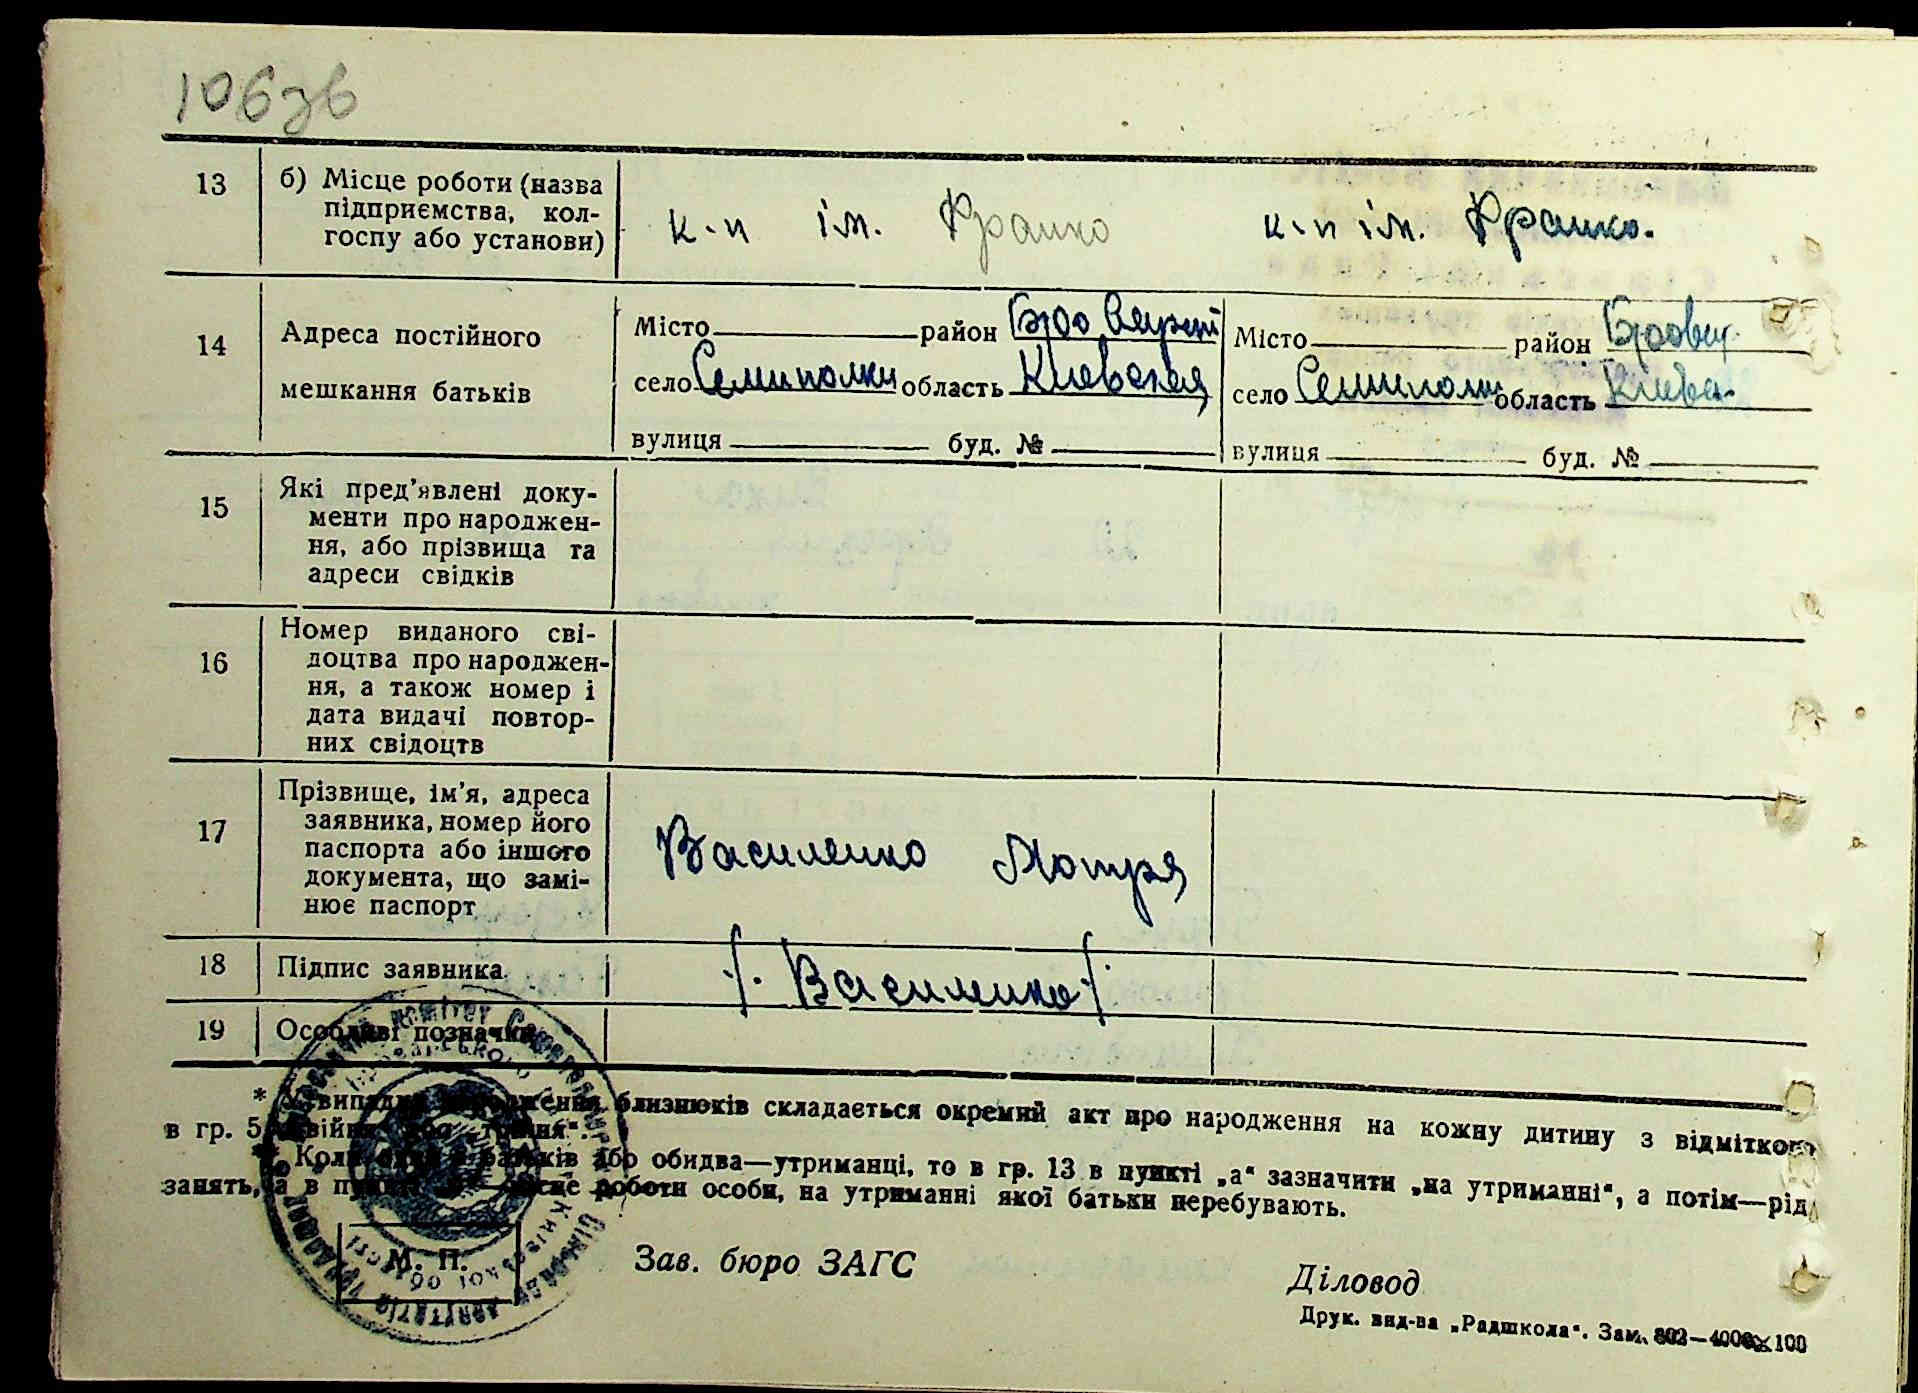 10636
13 б) Місце роботи (назва
підприємства, кол-
госпу або установи)
к-п ім. Франко к-п ім. Франко.
14 Адреса постійного
мешкання батьків
Місто район Місто район
село Семиполки область Киевская село Семиполки область Киевс.
вулиця буд. № вулиця буд. №
15 Які пред'явлені доку-
менти про народжен-
ня, або прізвища та
адреси свідків
16 Номер виданого сві-
доцтва про народжен-
ня, а також номер і
дата видачі повтор-
них свідоцтв
17 Прізвище, ім'я, адреса
заявника, номер його
паспорта або іншого
документа, що замі-
нює паспорт
Василенко Мотря
18 Підпис заявника /. Василенко /.
19 Особливі позначки
* У випадку народження близнюків складається окремий акт про народження на кожну дитину з відміткою
в гр. 5
Коли один з батьків або обидва—утриманці, то в гр. 13 в пункті „а“ зазначити „на утриманні“, а потім—рід
занять, а в пункті місце роботи особи, на утриманні якої батьки перебувають.
М. П. Зав. бюро ЗАГС Діловод
Друк. вид-ва „Радшкола“. Зам. 802—4000×100